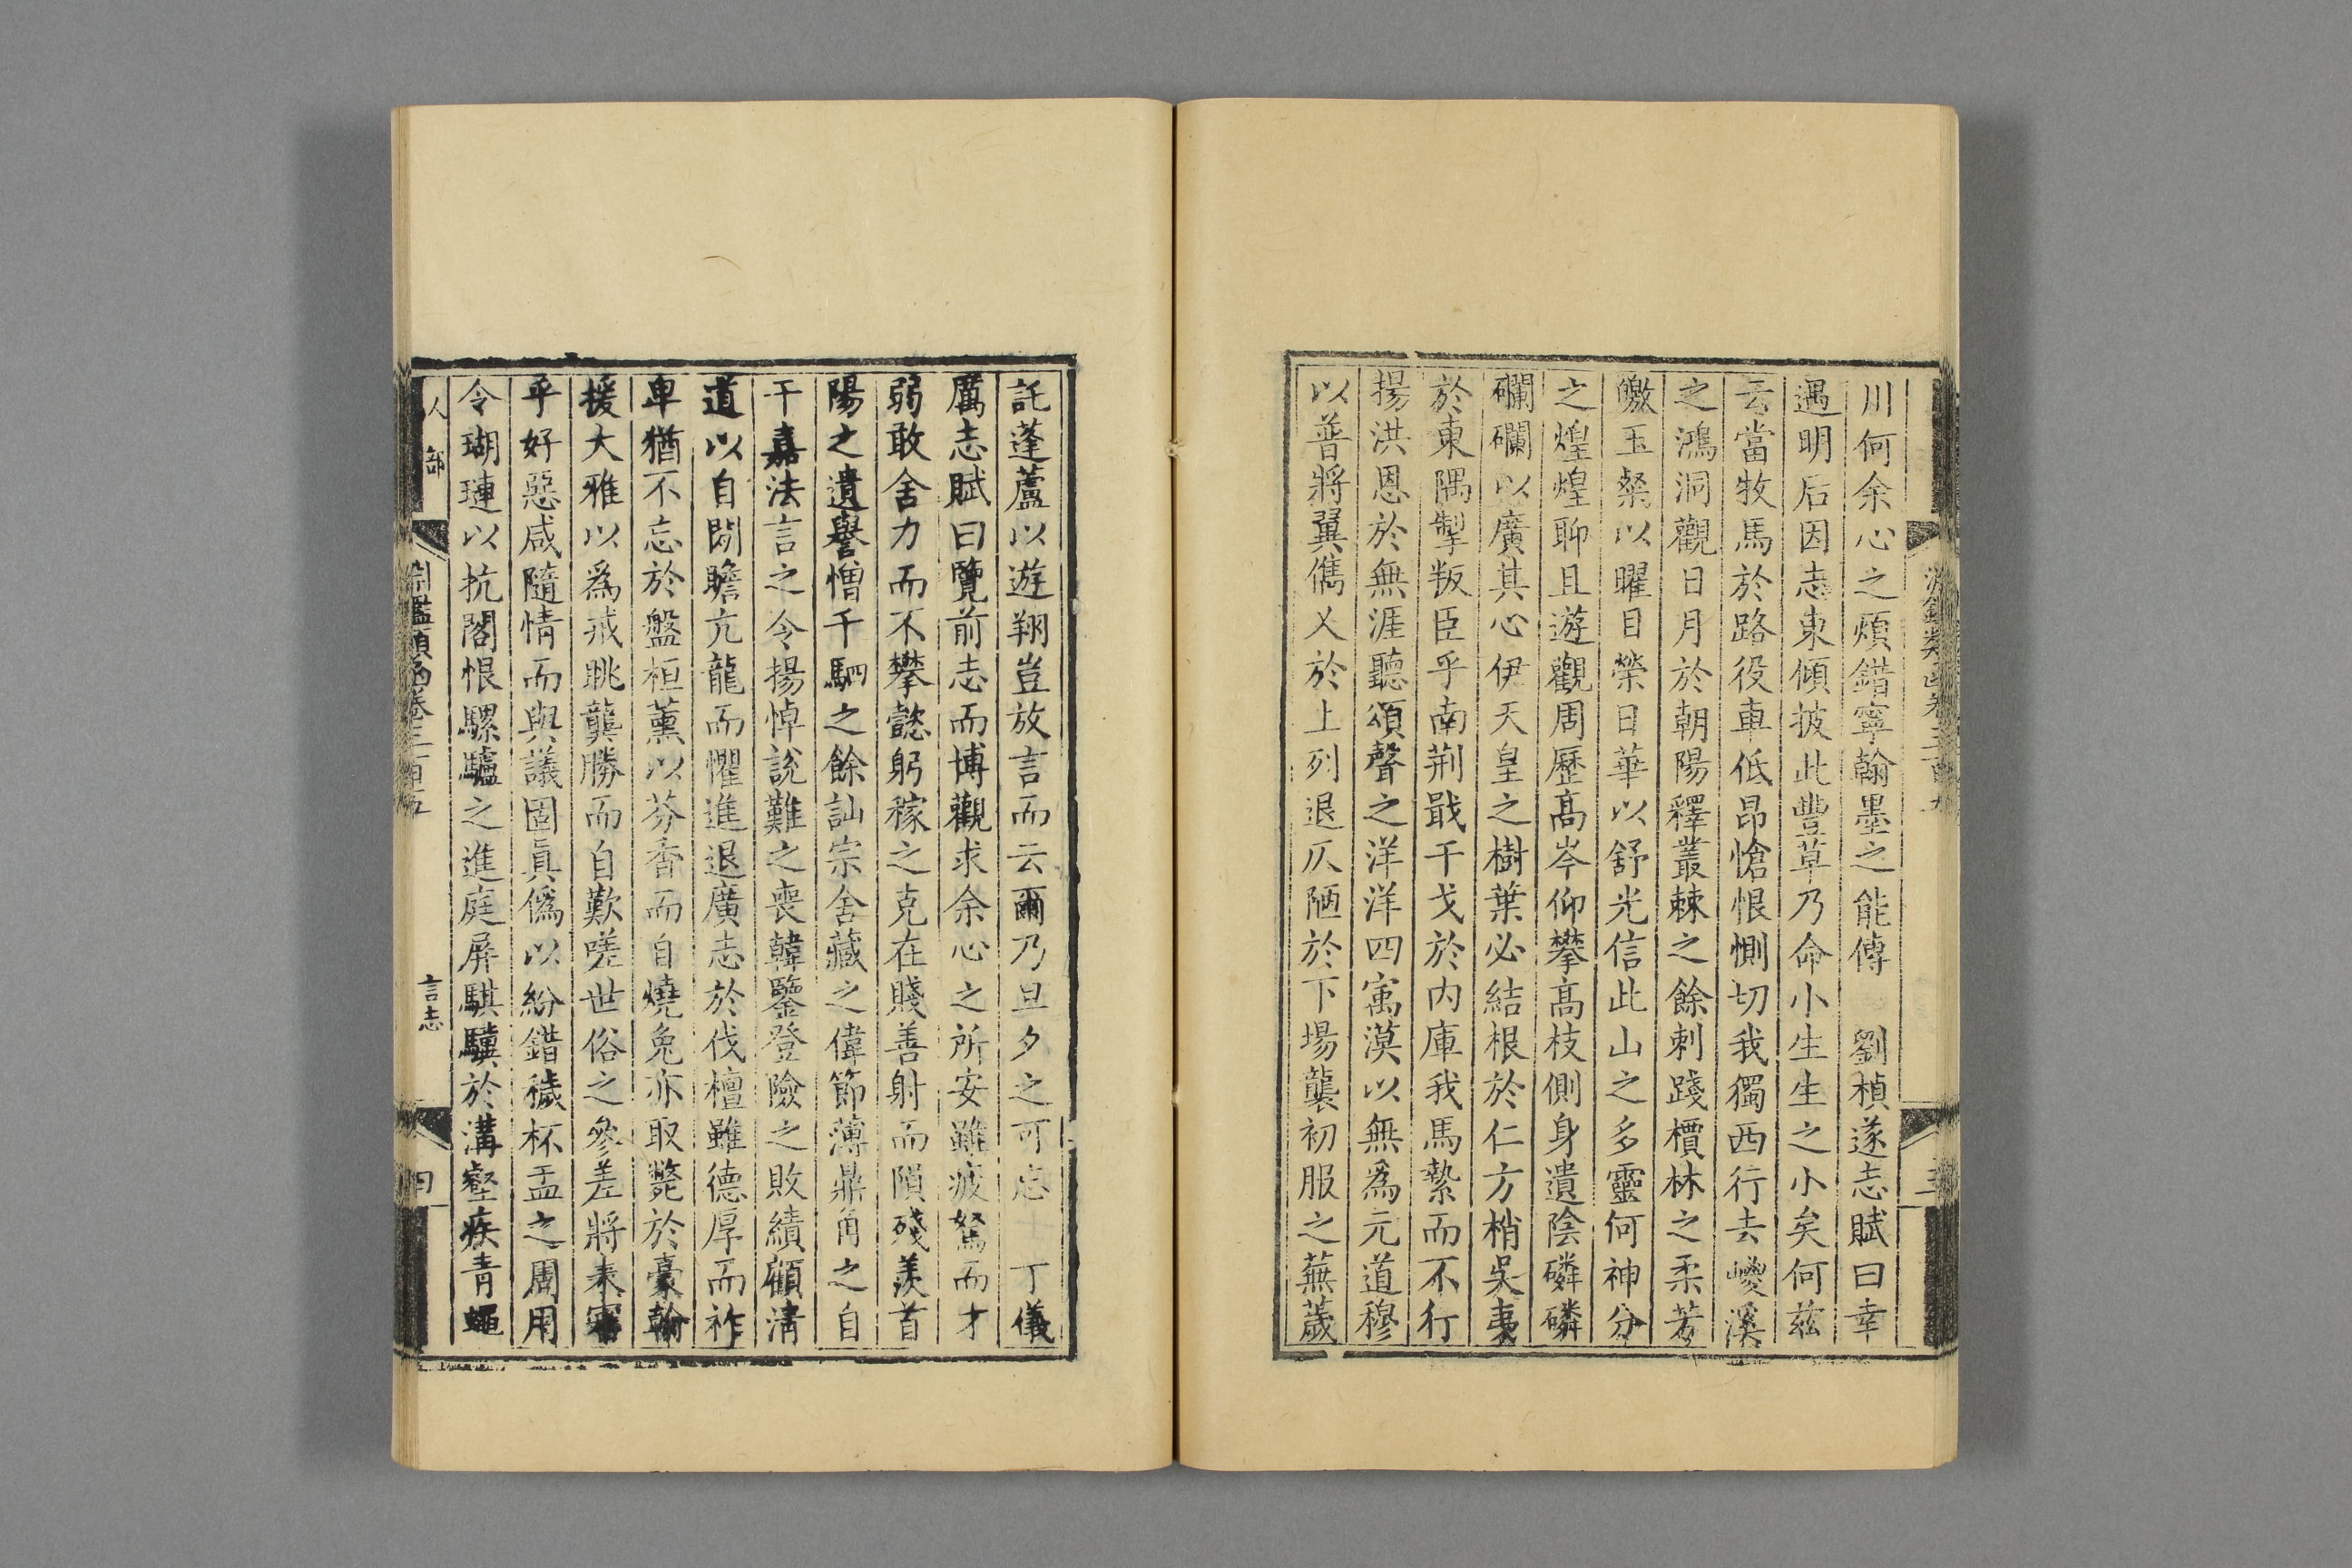 川何余心之煩錯寧翰墨之能傳　劉楨遂志賦曰幸
遇明后因志東傾披此豐草乃命小生生之小矣何茲
云當牧馬於路役車低昂愴恨惻切我獨西行去峻溪
之鴻洞觀日月於朝陽釋叢棘之餘刺踐檟林之柔芳
皦玉粲以曜目榮日華以舒光信此山之多靈何神分
之煌煌聊且遊觀周歷高岑仰攀高枝側身遺陰磷磷
礀礀以廣其心伊天皇之樹葉必結根於仁方梢吳夷
於東隅掣叛臣乎南荆戢干戈於内庫我馬縶而不行
揚洪恩於無涯聽頌聲之洋洋四寓漠以無爲元道穆
以普將翼儁乂於上列退仄陋於下場襲初服之蕪薉
託蓬蘆以遊翔豈放言而云爾乃旦夕之可忘　丁儀
厲志賦曰覽前志而博觀求余心之所安雖疲駑而才
弱敢舍力而不攀懿躬稼之克在賤善射而隕殘羨首
陽之遺譽憎千駟之餘訕宗舍藏之偉節薄鼎角之自
干嘉法言之令揚悼說難之喪韓鑒登險之敗績顧清
道以自閑瞻亢龍而懼進退廣志於伐檀雖德厚而祚
卑猶不忘於盤桓薰以芬香而自燒兔亦取斃於豪翰
援大雅以爲戒眺龔勝而自歎嗟世俗之參差將未審
乎好惡咸隨情而與議固眞僞以紛錯穢杯盂之周用
令瑚璉以抗閣恨騾驢之進庭屏騏驥於溝壑疾青蠅
人部
言志
四